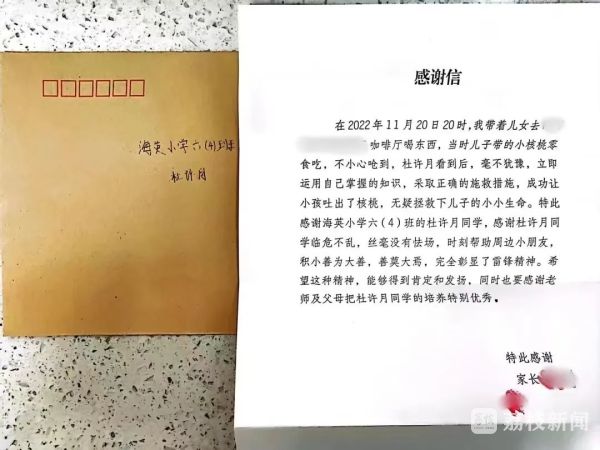 海英小学六(4)班
杜许月
感谢信
在2022年11月20日20时,我带着儿女去
咖啡厅喝东西,当时儿子带的小核桃零
食吃,不小心呛到,杜许月看到后,毫不犹豫,立即
运用自己掌握的知识,采取正确的施救措施,成功让
小孩吐出了核桃,无疑拯救下儿子的小小生命。特此
感谢海英小学六(4)班的杜许月同学,感谢杜许月同
学临危不乱,丝毫没有怯场,时刻帮助周边小朋友,
积小善为大善,善莫大焉,完全彰显了雷锋精神。希
望这种精神,能够得到肯定和发扬,同时也要感谢老
师及父母把杜许月同学的培养特别优秀。
特此感谢
家长
荔枝新闻